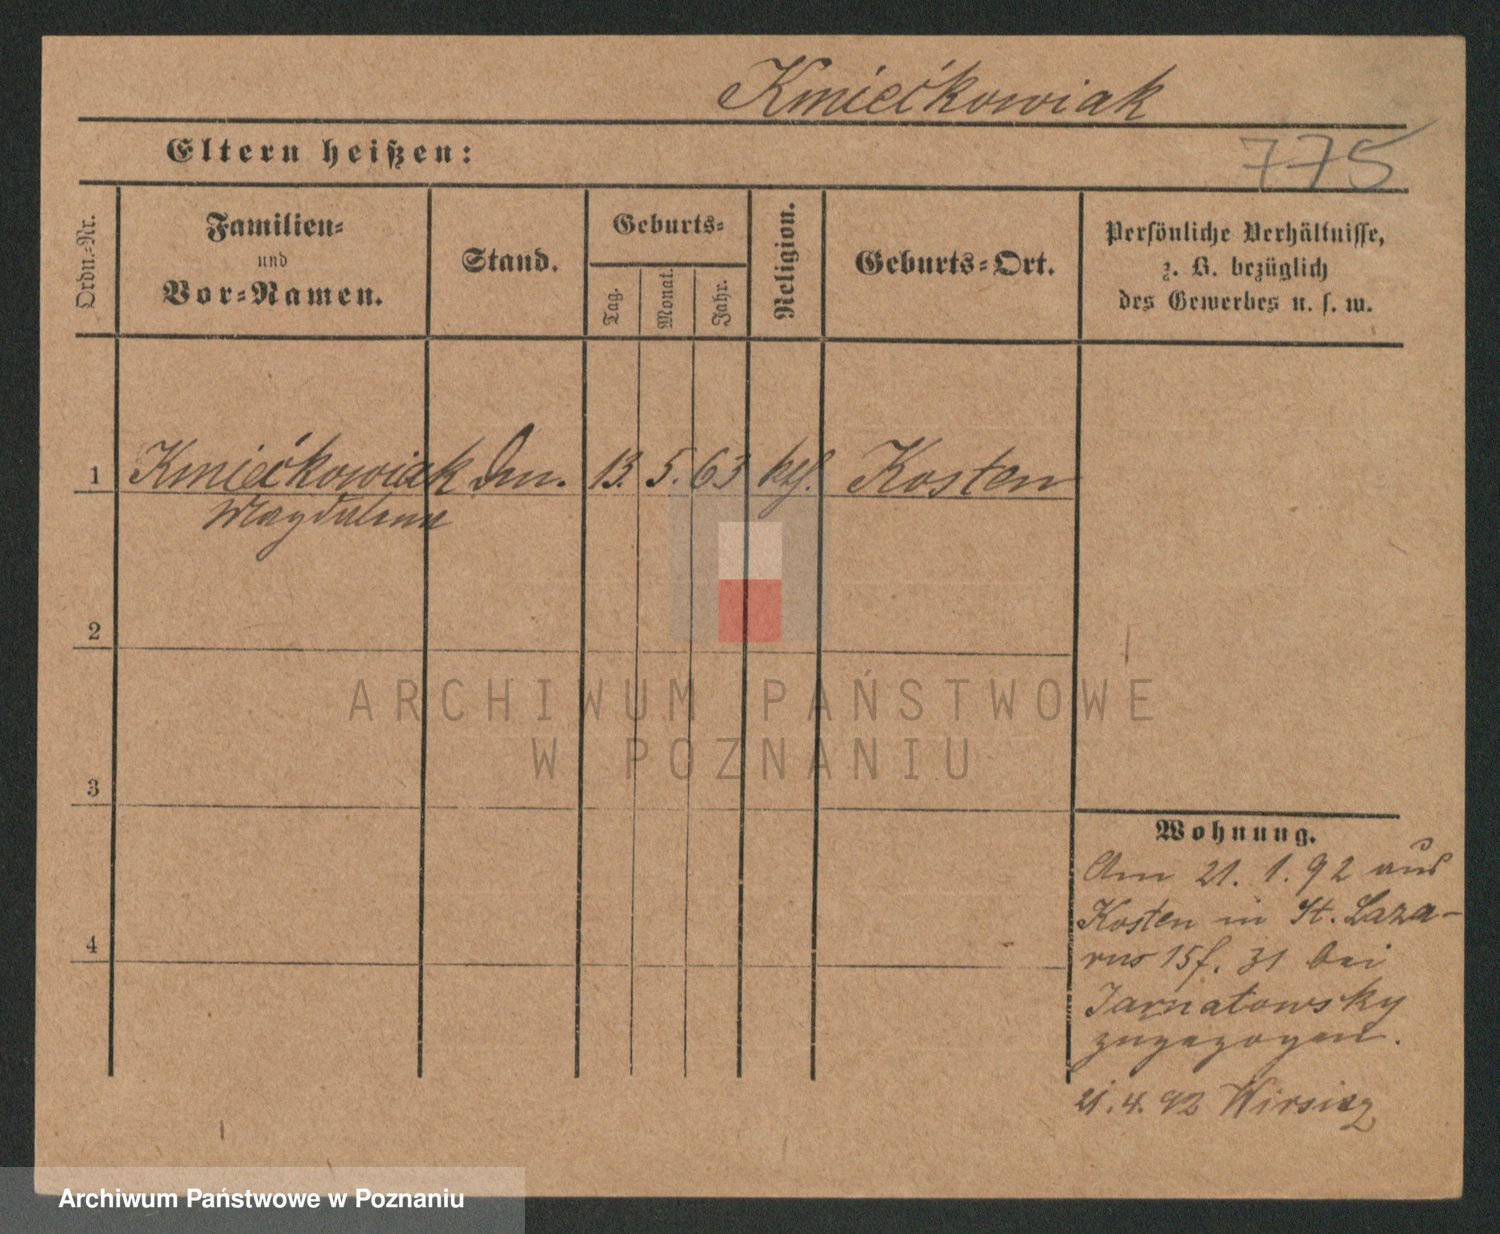 Kmiećkowiak
Eltern heißen:
775
Ordn.-Nr.
Familien-
und
Vor-Namen.
Stand.
Geburts-
Tag.
Monat.
Jahr.
Religion.
Geburts-Ort.
Persönliche Verhältnisse,
z. B. bezüglich
des Gewerbes u. s. w.
1 Kmiećkowiak 13. 5. 63 ktf. Kosten
Magdalena
2
3
4
ARCHIWUM PAŃSTWOWE
W POZNANIU
Wohnung.
Am 21. 1. 92 aus
Kosten in St. Laza-
rus 15f. 31 bei
Jarnatowsky
zugezogen.
21. 4. 92
Archiwum Państwowe w Poznaniu